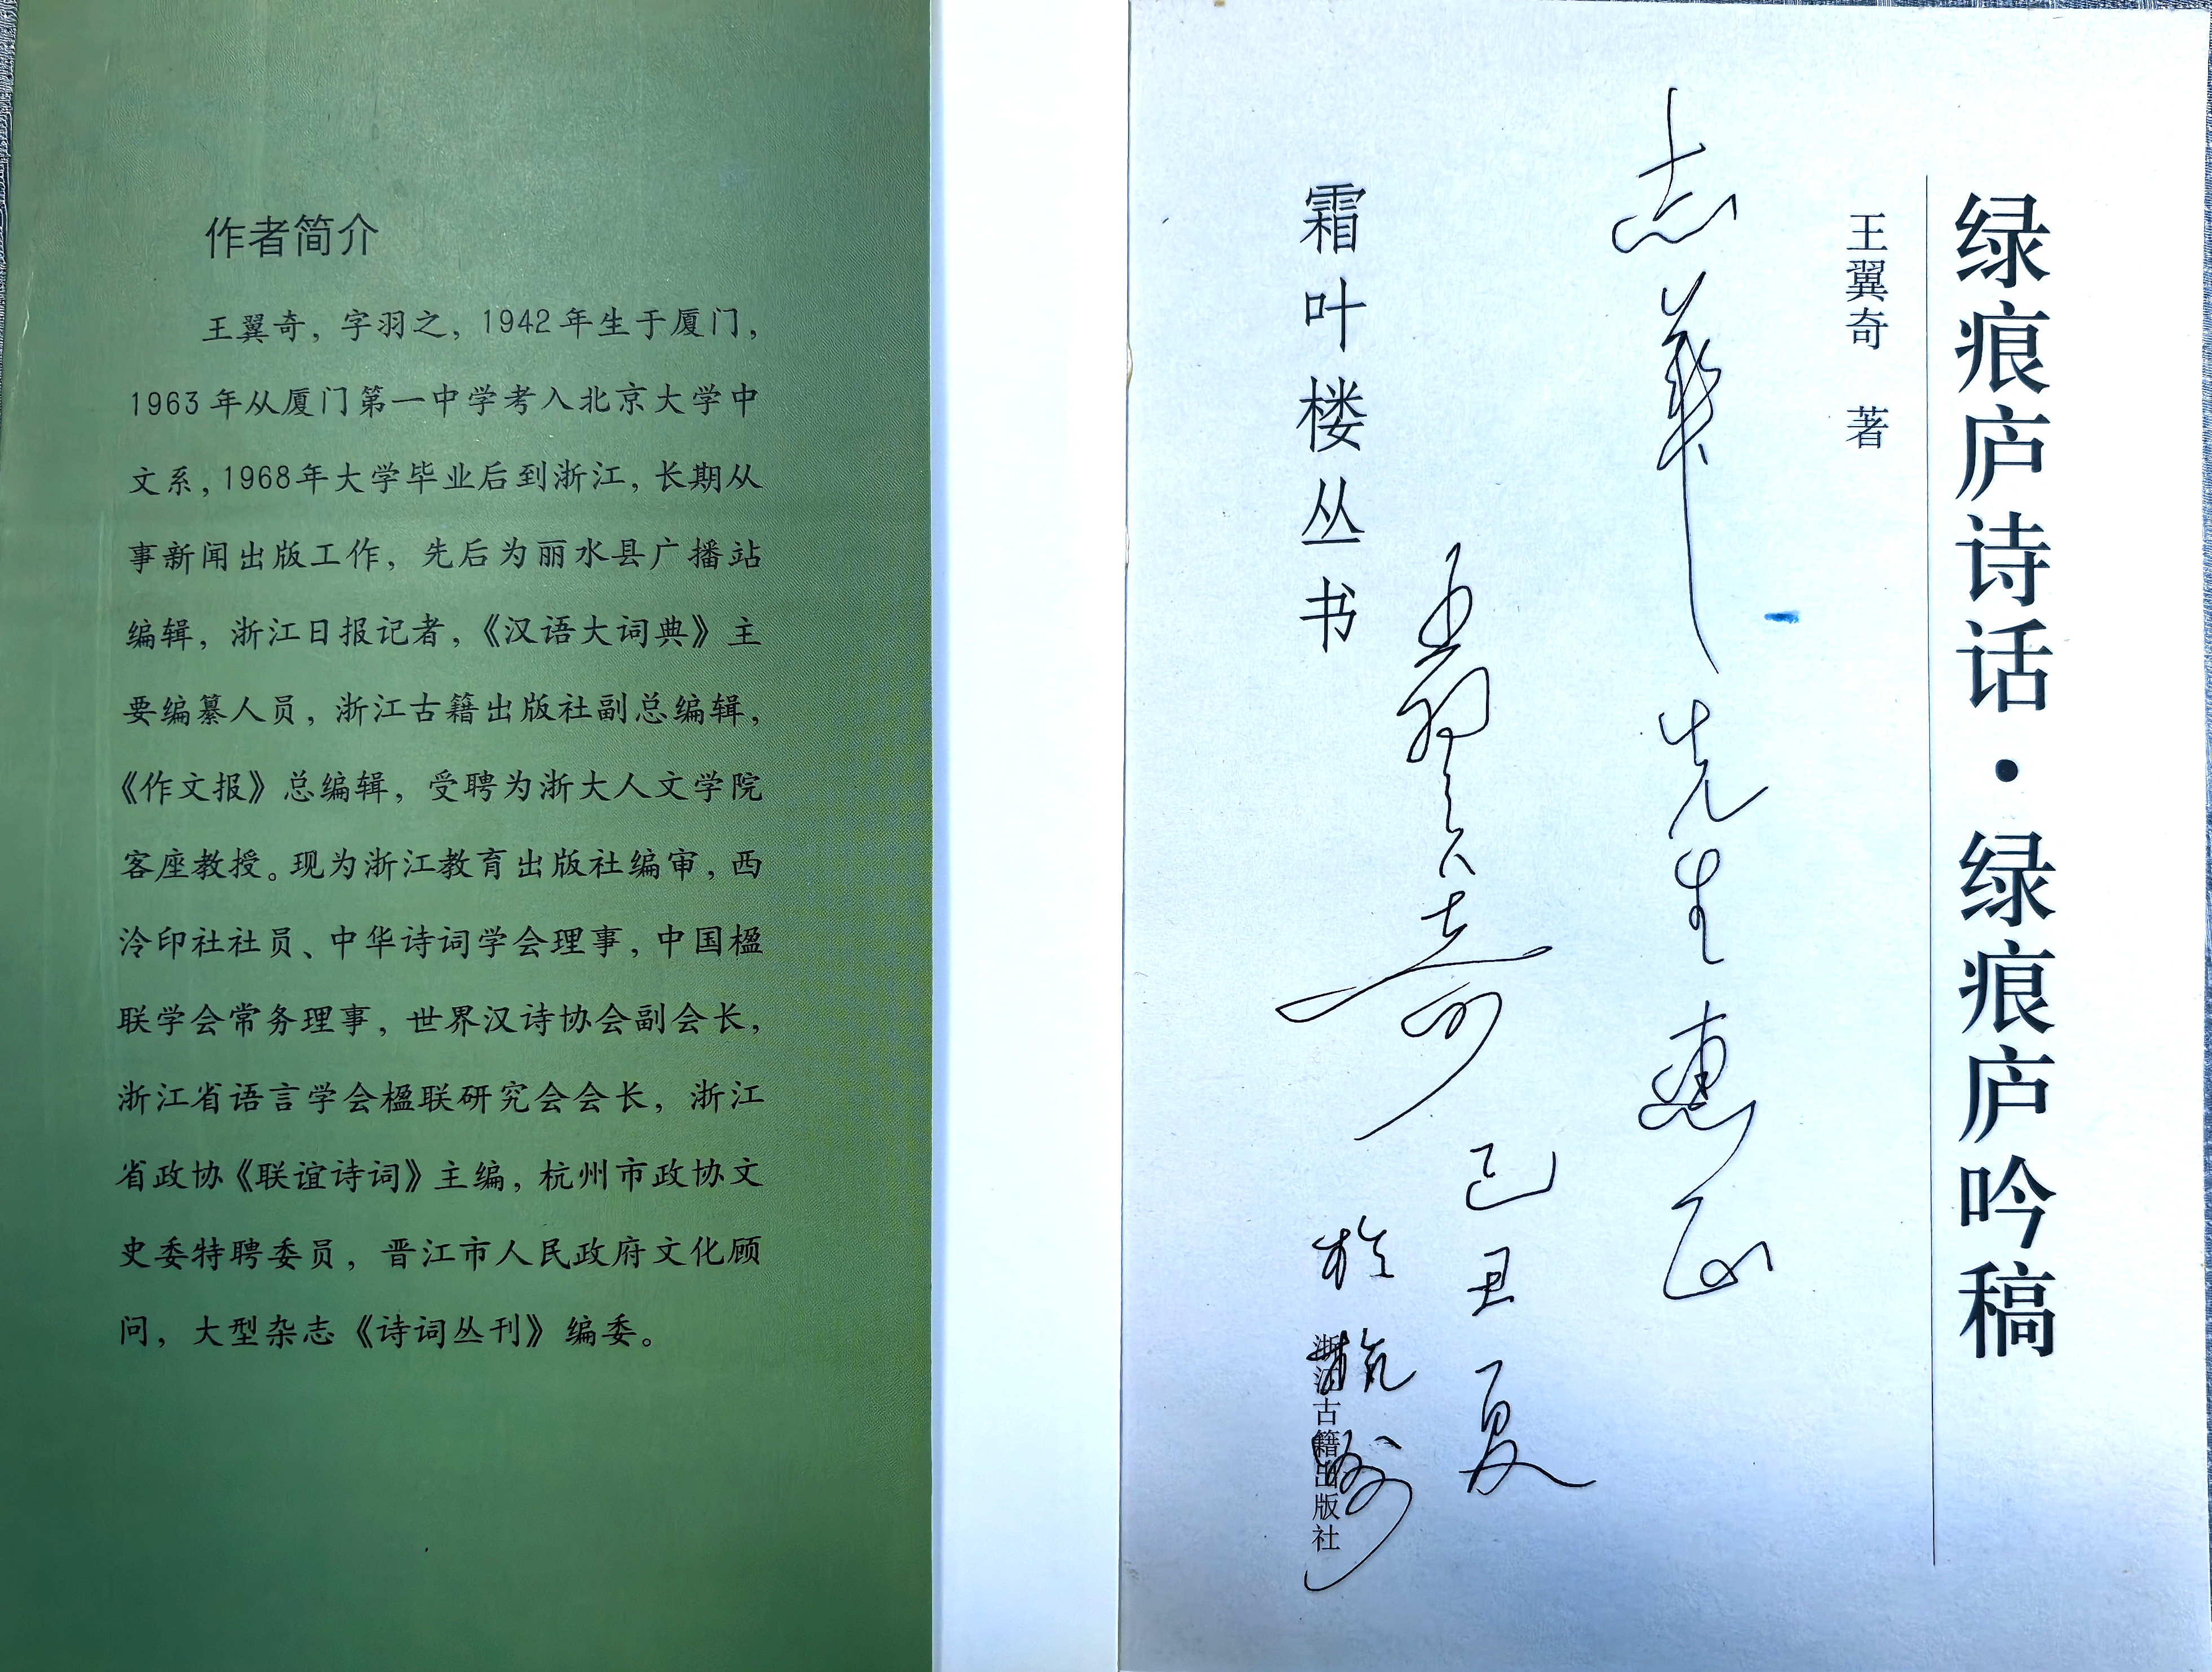 作者简介
王翼奇，字羽之，1942年生于厦门，
1963年从厦门第一中学考入北京大学中
文系，1968年大学毕业后到浙江，长期从
事新闻出版工作，先后为丽水县广播站
编辑，浙江日报记者，《汉语大词典》主
要编纂人员，浙江古籍出版社副总编辑，
《作文报》总编辑，受聘为浙大人文学院
客座教授。现为浙江教育出版社编审，西
泠印社社员、中华诗词学会理事，中国楹
联学会常务理事，世界汉诗协会副会长，
浙江省语言学会楹联研究会会长，浙江
省政协《联谊诗词》主编，杭州市政协文
史委特聘委员，晋江市人民政府文化顾
问，大型杂志《诗词丛刊》编委。
绿痕庐诗话·绿痕庐吟稿
王翼奇 著
志华先生惠正
王翼奇
己丑夏
於杭州
霜叶楼丛书
浙江古籍出版社